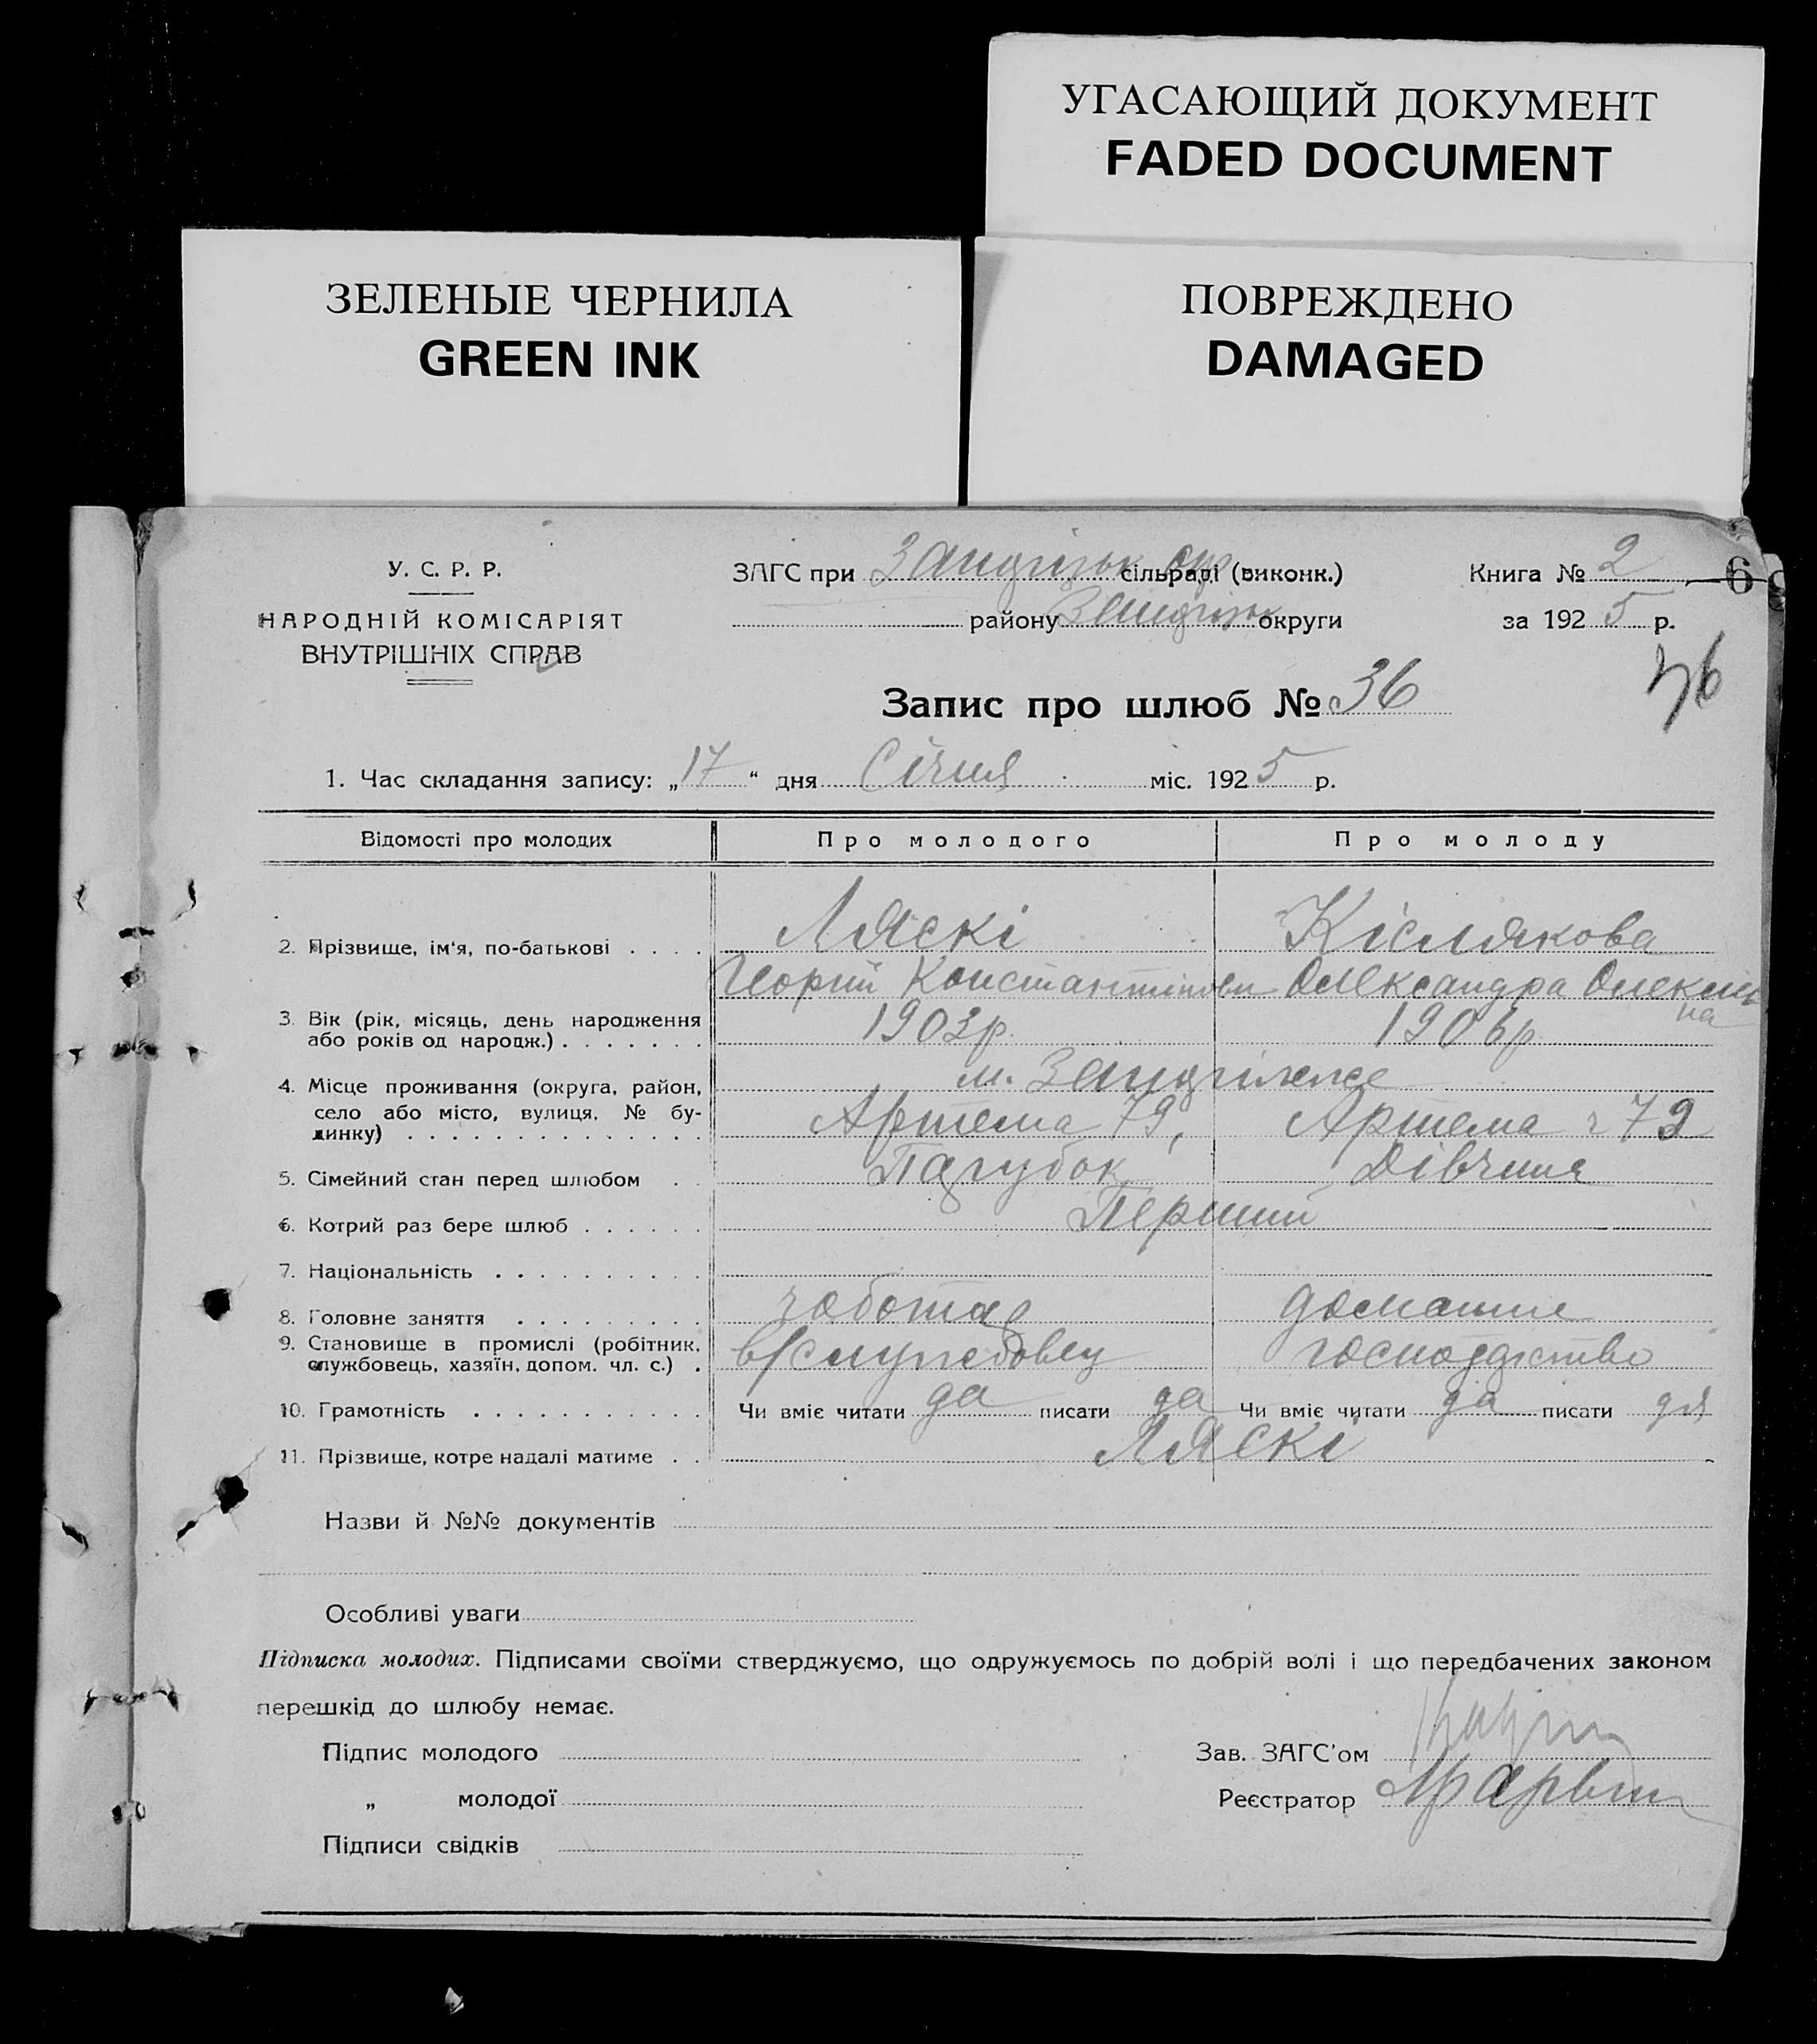 УГАСАЮЩИЙ ДОКУМЕНТ
FADED DOCUMENT
ЗЕЛЕНЫЕ ЧЕРНИЛА
GREEN INK
ПОВРЕЖДЕНО
DAMAGED
У. С. Р. Р.
НАРОДНІЙ КОМІСАРІЯТ
ВНУТРІШНІХ СПРАВ
ЗАГС при сільраді (виконк.)
району округи
Книга № 2
за 1925 р.
6
36
Запис про шлюб № 36
1. Час складання запису: „17“ дня Січня міс. 1925 р.
Відомості про молодих Про молодого Про молоду
2. Прізвище, ім'я, по-батькові . . . . Ляскі Кіслякова
Георгій Константінови Олександра Олексіїв
на
3. Вік (рік, місяць, день народження
або років од народж.) . . . . . . . 1903р. 1906р.
4. Місце проживання (округа, район,
село або місто, вулиця, № бу-
динку) . . . . . . . . . . . . . . . Артема 79, Артема 79
5. Сімейний стан перед шлюбом . . Парубок Дівчина
6. Котрий раз бере шлюб . . . . . . Перший
7. Національність . . . . . . . . . .
8. Головне заняття . . . . . . . . . домашнє
9. Становище в промислі (робітник,
службовець, хазяїн, допом. чл. с.) . господарство
10. Грамотність . . . . . . . . . . . Чи вміє читати да писати да Чи вміє читати да писати да
11. Прізвище, котре надалі матиме . . Ляскі
Назви й №№ документів
Особливі уваги
Підписка молодих. Підписами своїми стверджуємо, що одружуємось по добрій волі і що передбачених законом
перешкід до шлюбу немає.
Підпис молодого
„ молодої
Підписи свідків
Зав. ЗАГС'ом
Реєстратор